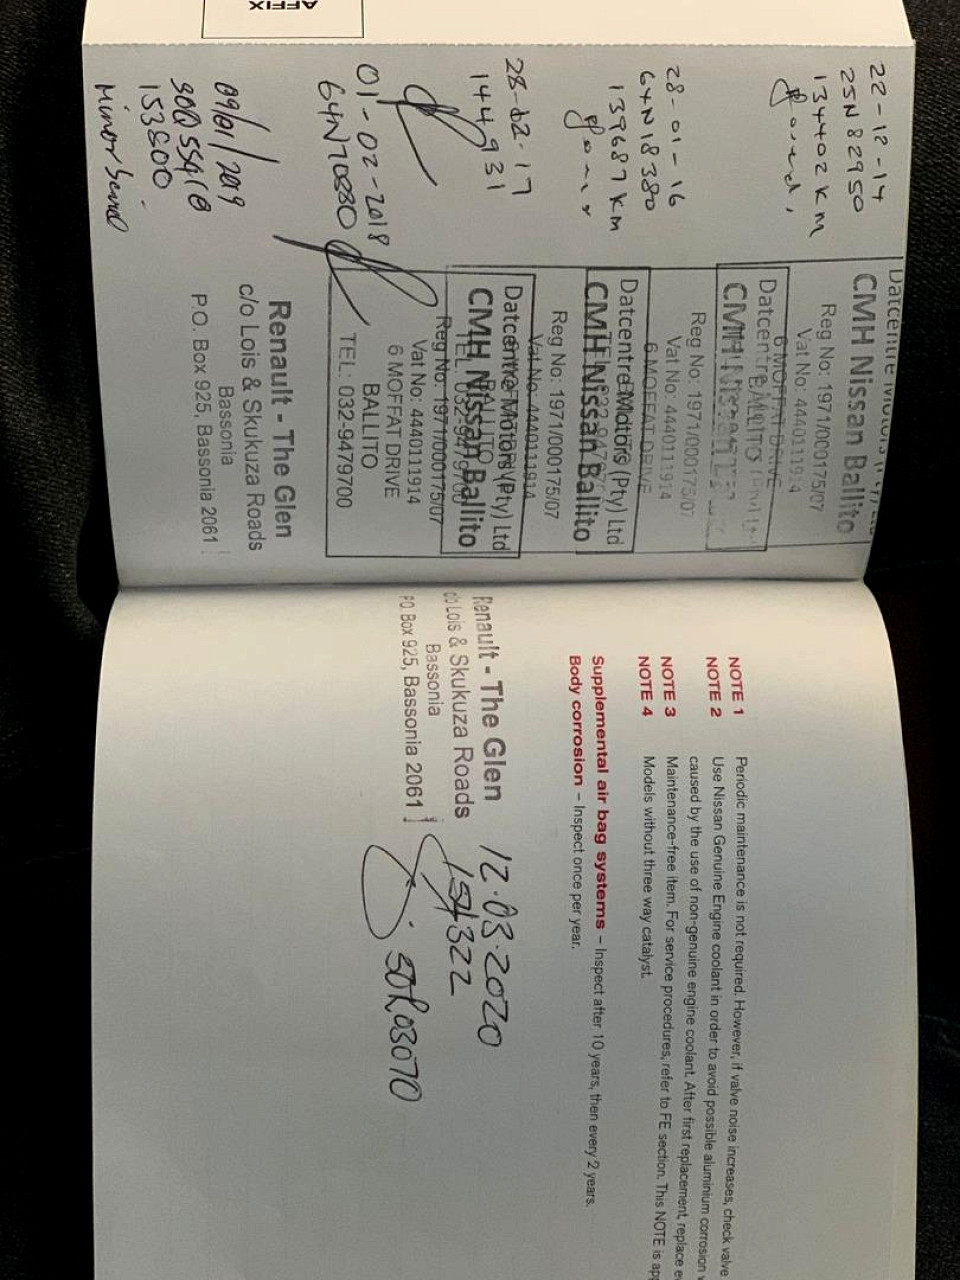 AFFIX
22-12-14
25N82950
134402 KM
Datcentre Motors (Pty) Ltd
CMH Nissan Ballito
Reg No: 1971/000175/07
Vat No: 4440111914
6 MOFFAT DRIVE
BALLITO
28-01-16
64N18380
139687 KM
Datcentre
CMH Nissan
Reg No: 1971/000175/07
Vat No: 4440111914
6 MOFFAT DRIVE
28-02-17
144931
Datcentre Motors (Pty) Ltd
CMH Nissan Ballito
Reg No: 1971/000175/07
Vat No: 4440111914
01-02-2018
64N70880
Datcentre Motors (Pty) Ltd
CMH Nissan Ballito
Reg No: 1971/000175/07
Vat No: 4440111914
6 MOFFAT DRIVE
BALLITO
TEL: 032-9479700
09/01/2019
153800
Minor
Renault - The Glen
c/o Lois & Skukuza Roads
Bassonia
P.O. Box 925, Bassonia 2061
NOTE 1 Periodic maintenance is not required. However, if valve noise increases, check valve
NOTE 2 Use Nissan Genuine Engine coolant in order to avoid possible aluminium corrosion
caused by the use of non-genuine engine coolant. After first replacement, replace
NOTE 3 Maintenance-free item. For service procedures, refer to FE section. This NOTE is
NOTE 4 Models without three way catalyst.
Supplemental air bag systems – Inspect after 10 years, then every 2 years.
Body corrosion – Inspect once per year.
Renault - The Glen
c/o Lois & Skukuza Roads
Bassonia
P.O. Box 925, Bassonia 2061
12.03.2020
50R03070